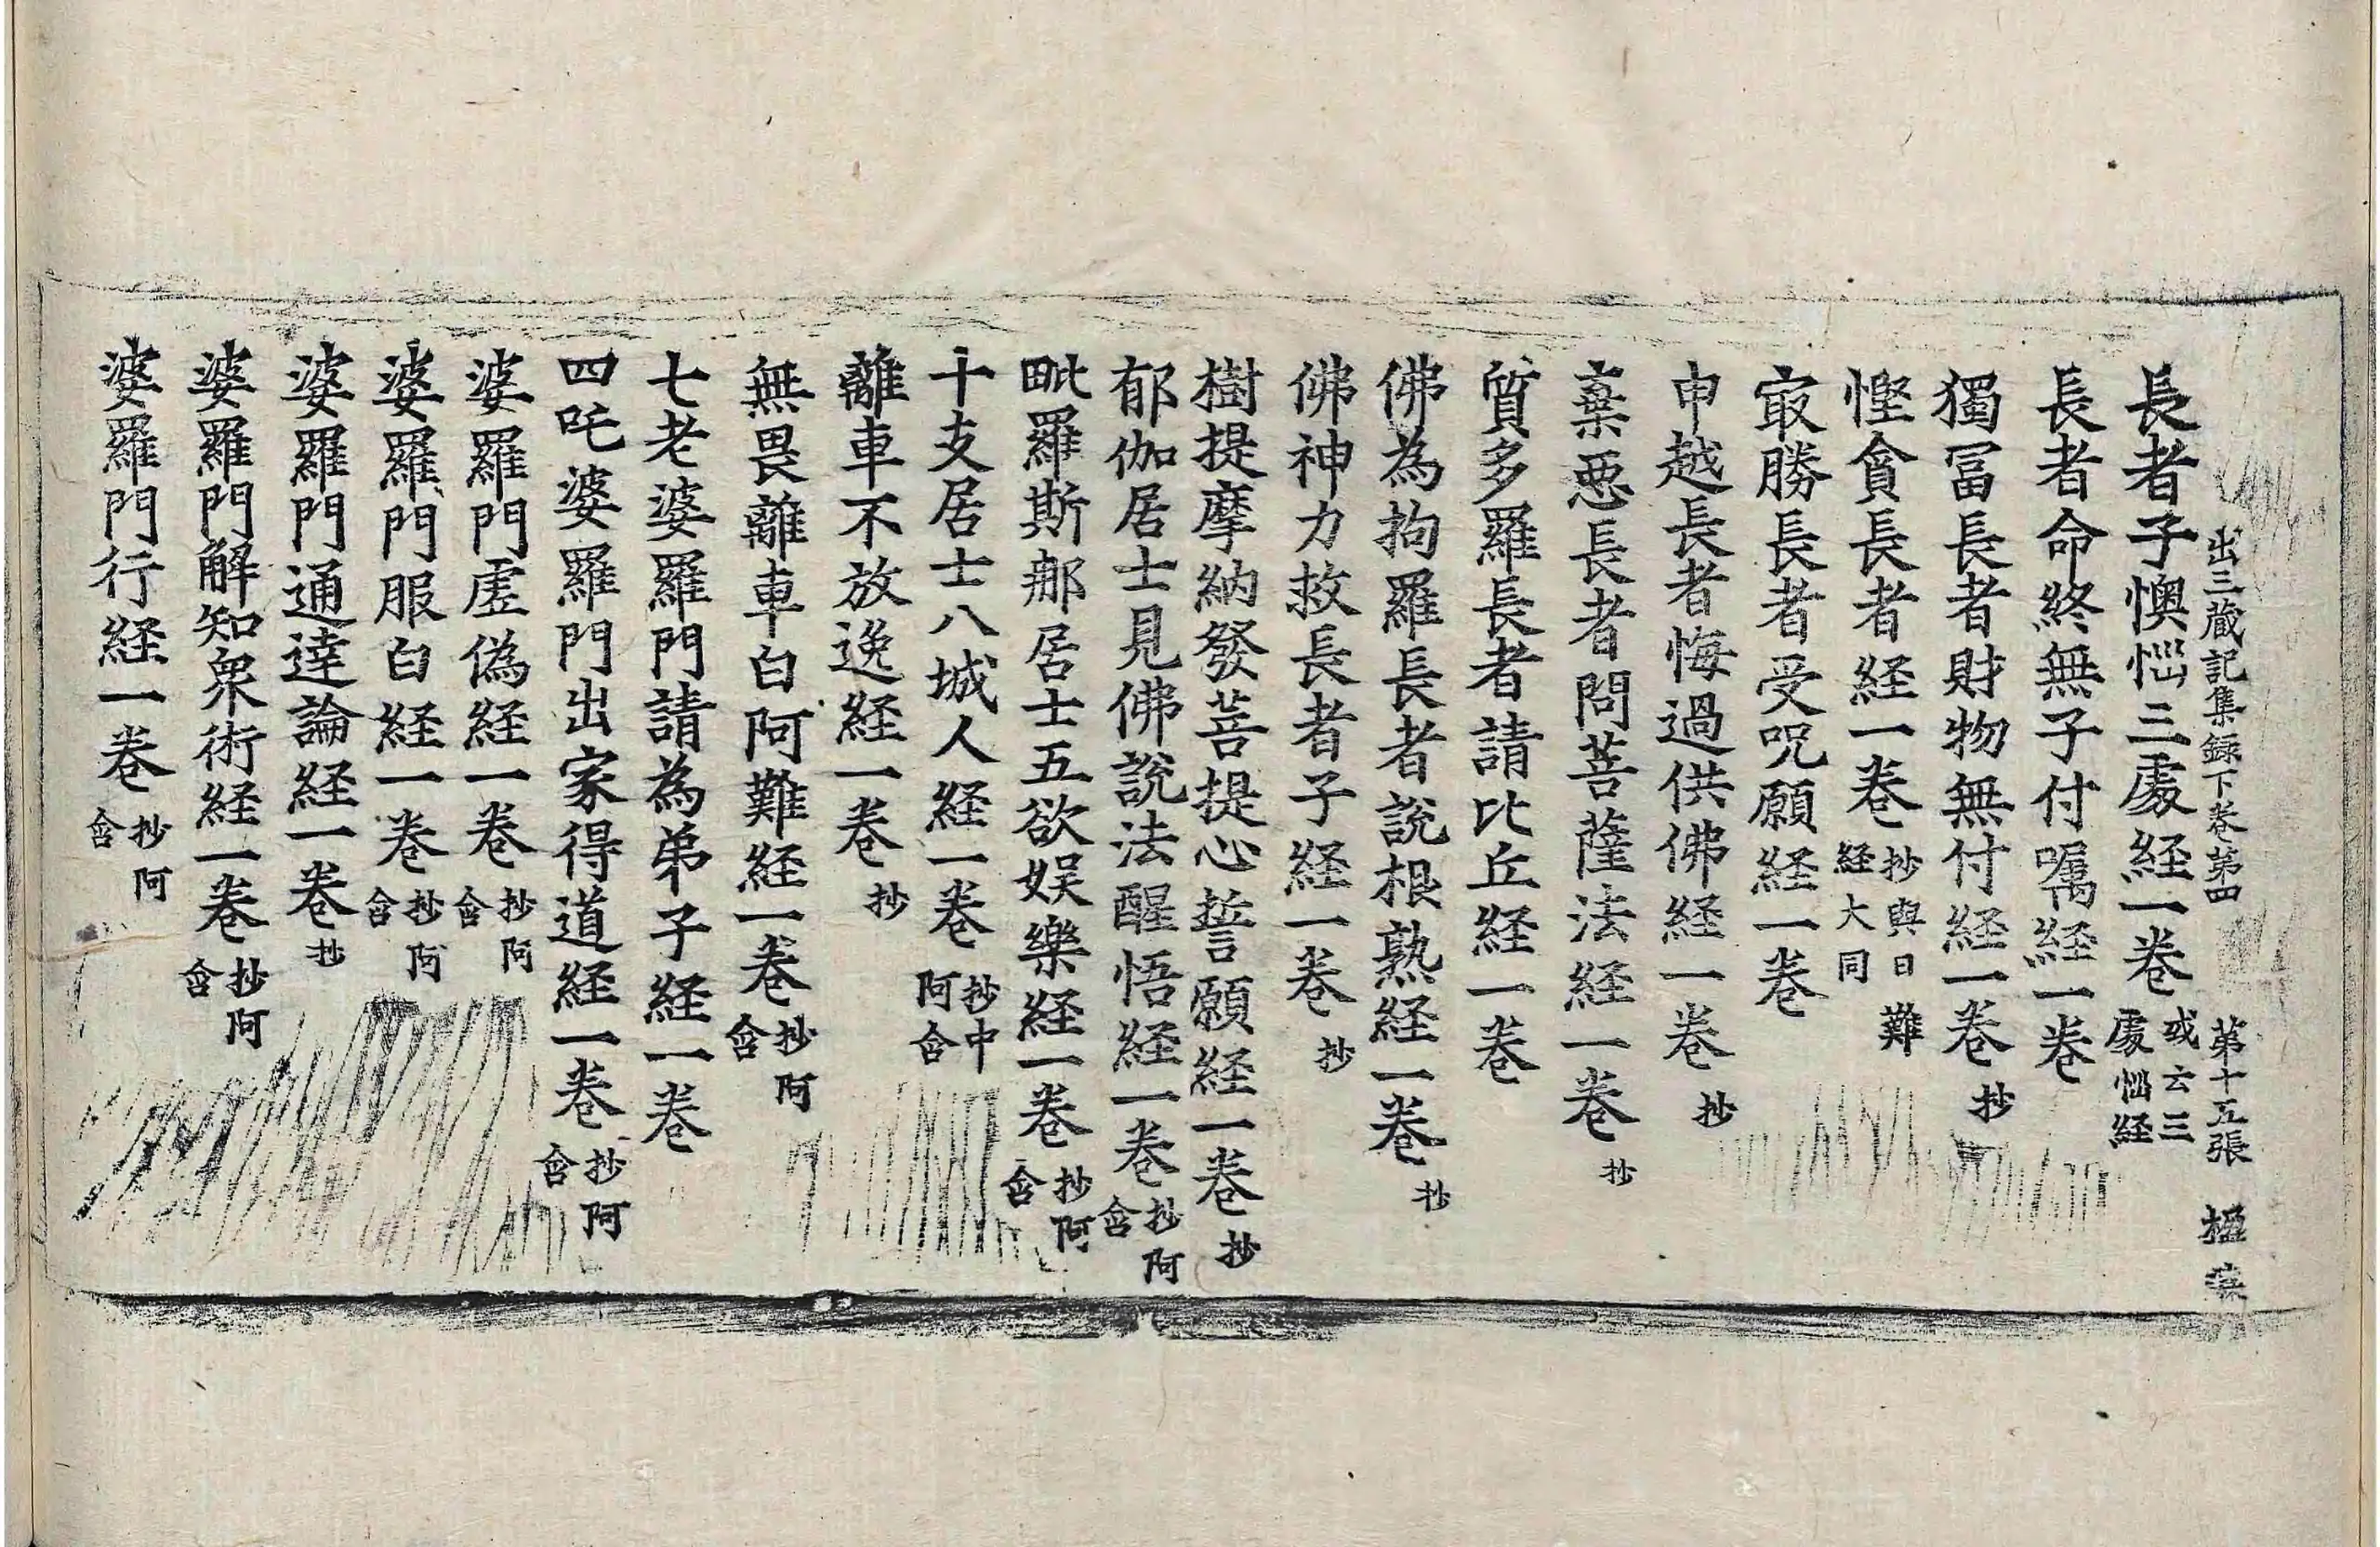 出三蔵記集録下卷第四 第十五張 楹
長者子懊惱三處経一卷 或云三處惱経
長者命終無子付嘱経一卷
獨冨長者財物無付経一卷 抄
慳貪長者経一卷 抄與日難経大同
㝡勝長者受呪願経一卷
申越長者悔過供佛経一卷 抄
棄惡長者問菩薩法経一卷 抄
質多羅長者請比丘経一卷
佛為拘羅長者說根熟経一卷 抄
佛神力救長者子経一卷 抄
樹提摩納發菩提心誓願経一卷 抄
郁伽居士見佛說法醒悟経一卷 抄阿含
毗羅斯那居士五欲娛樂経一卷 抄阿含
十支居士八城人経一卷 抄中阿含
離車不放逸経一卷 抄
無畏離車白阿難経一卷 抄阿含
七老婆羅門請為弟子経一卷
四吒婆羅門出家得道経一卷 抄阿含
婆羅門虛偽経一卷 抄阿含
婆羅門服白経一卷 抄阿含
婆羅門通達論経一卷 抄
婆羅門解知衆術経一卷 抄阿含
婆羅門行経一卷 抄阿含